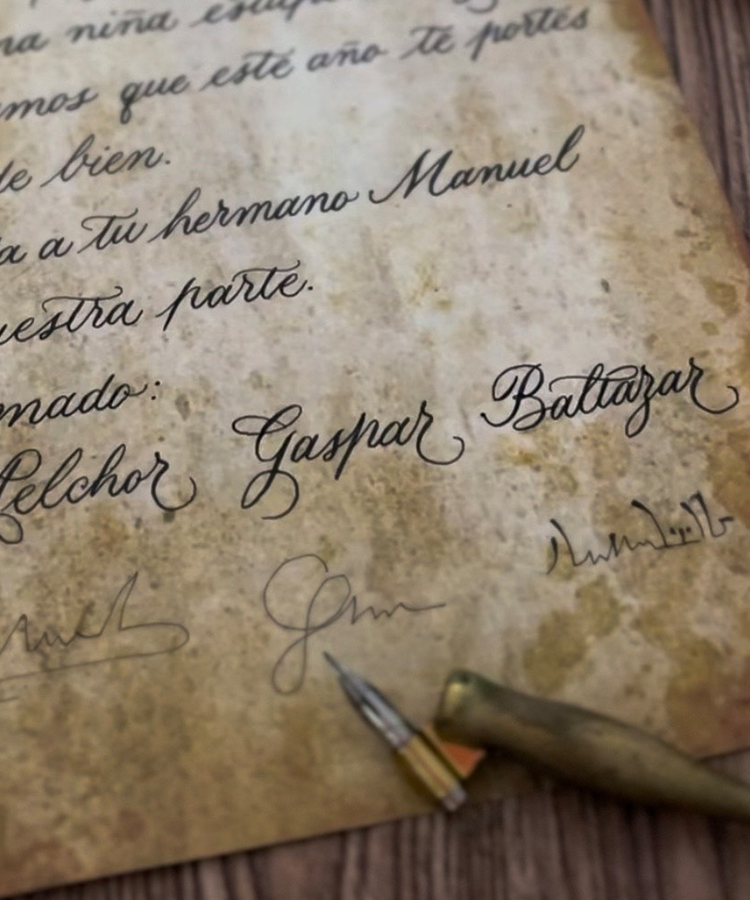 na niña
amos que este año te portes
de bien.
a a tu hermano Manuel
uestra parte.
mado:
elchor Gaspar Baltazar